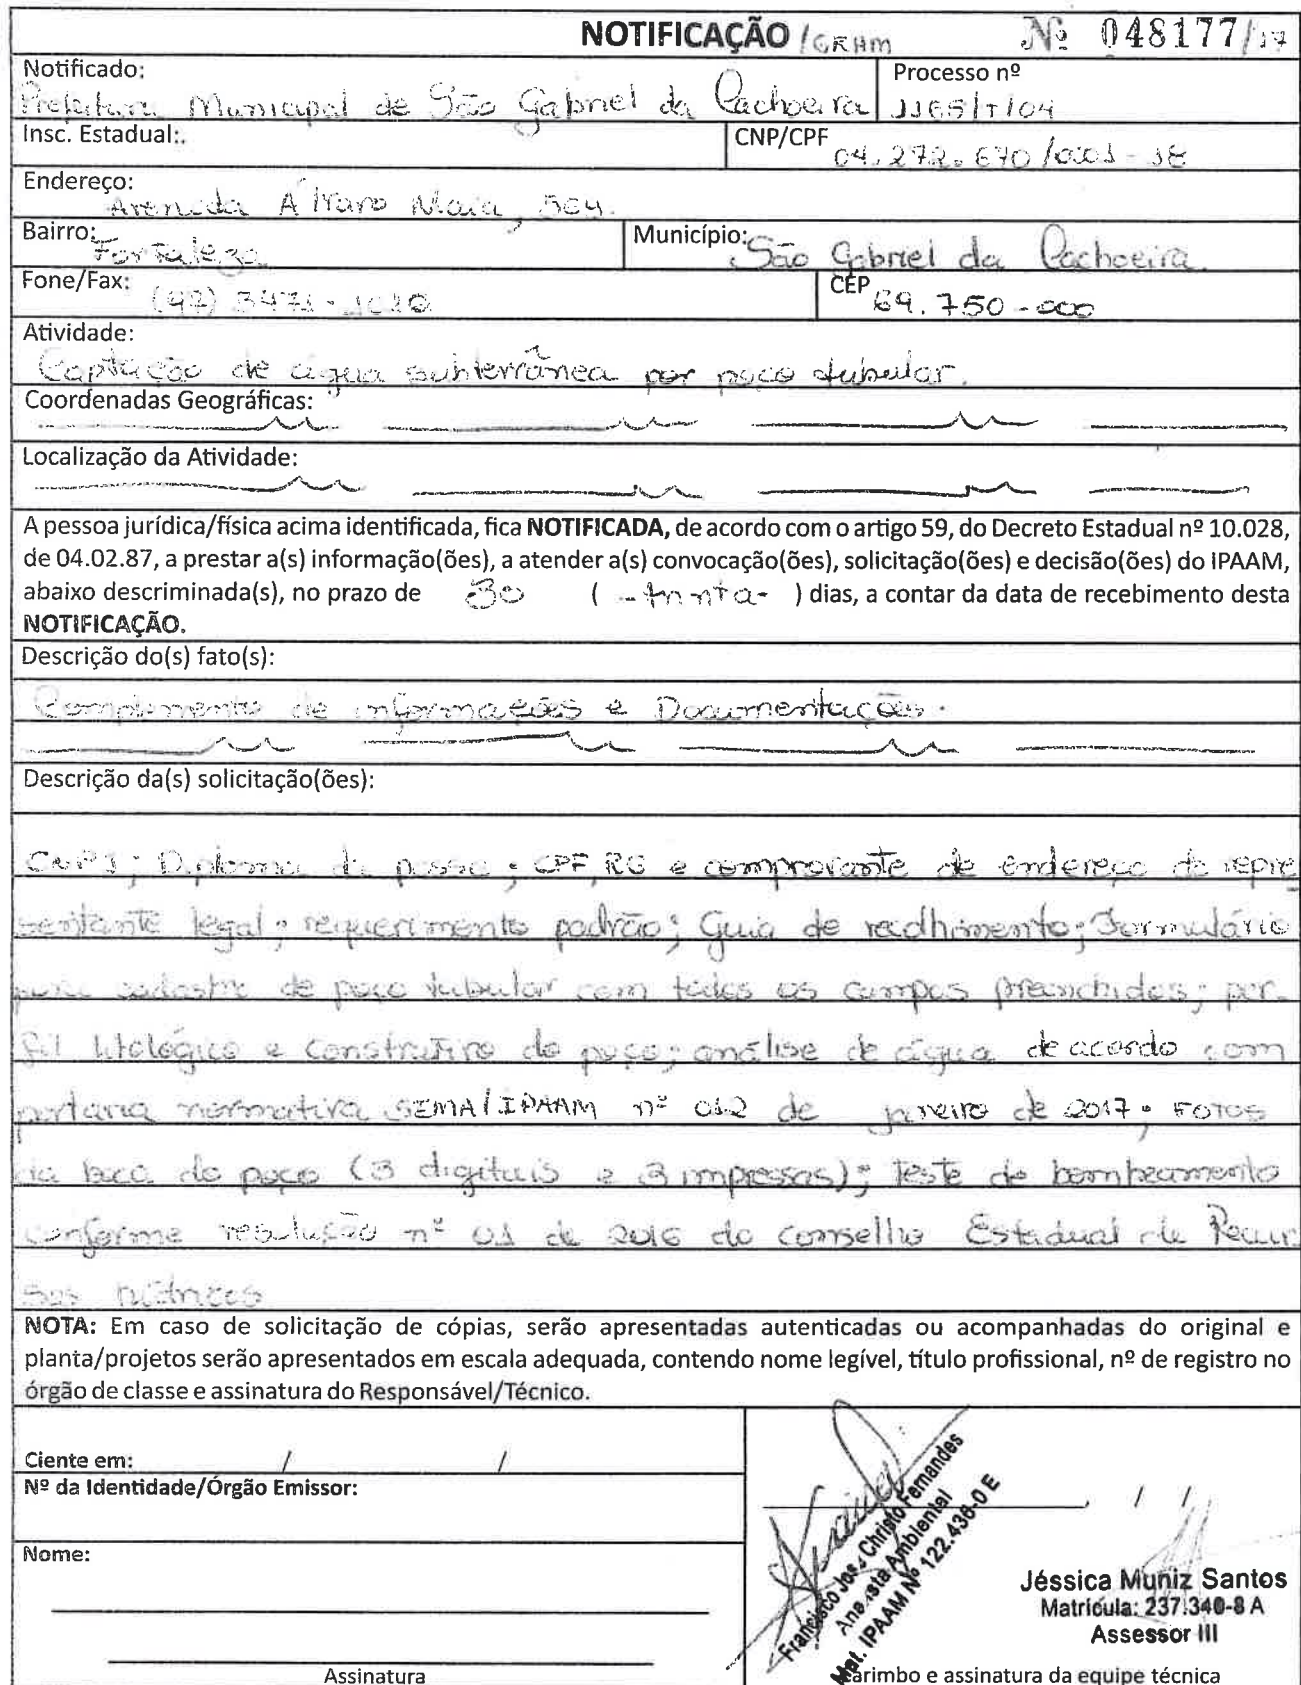 NOTIFICAÇÃO /GRHM Nº 048177/17
Notificado: Processo nº
Prefeitura Municipal de São Gabriel da Cachoeira 1165/T/04
Insc. Estadual:. CNP/CPF 04.272.670/0001-18
Endereço:
Avenida Álvaro Maia, 504.
Bairro: Fortaleza Município: São Gabriel da Cachoeira.
Fone/Fax: (97) 3471-1020 CEP 69.750-000
Atividade:
Captação de água subterrânea por poço tubular.
Coordenadas Geográficas:
Localização da Atividade:
A pessoa jurídica/física acima identificada, fica NOTIFICADA, de acordo com o artigo 59, do Decreto Estadual nº 10.028,
de 04.02.87, a prestar a(s) informação(ões), a atender a(s) convocação(ões), solicitação(ões) e decisão(ões) do IPAAM,
abaixo descriminada(s), no prazo de 30 ( -trinta- ) dias, a contar da data de recebimento desta
NOTIFICAÇÃO.
Descrição do(s) fato(s):
Complemento de informações e Documentações.
Descrição da(s) solicitação(ões):
CNPJ; Diploma de posse; CPF, RG e comprovante de endereço do repre
sentante legal; requerimento padrão; Guia de recolhimento; Formulário
para cadastro de poço tubular com todos os campos preenchidos; per-
fil litológico e construtivo do poço; análise de água de acordo com
portaria normativa SEMA/IPAAM nº 012 de janeiro de 2017; FOTOS
da boca do poço (3 digitais e 3 impressas); teste de bombeamento
conforme resolução nº 01 de 2016 do conselho Estadual de Recur
sos hídricos
NOTA: Em caso de solicitação de cópias, serão apresentadas autenticadas ou acompanhadas do original e
planta/projetos serão apresentados em escala adequada, contendo nome legível, título profissional, nº de registro no
órgão de classe e assinatura do Responsável/Técnico.
Ciente em: / /
Nº da Identidade/Órgão Emissor:
Nome:
Assinatura
, / /
Francisco José Christo Fernandes
Analista Ambiental
Mat. IPAAM Nº 122.436-0 E
Jéssica Muniz Santos
Matrícula: 237.340-8 A
Assessor III
Carimbo e assinatura da equipe técnica